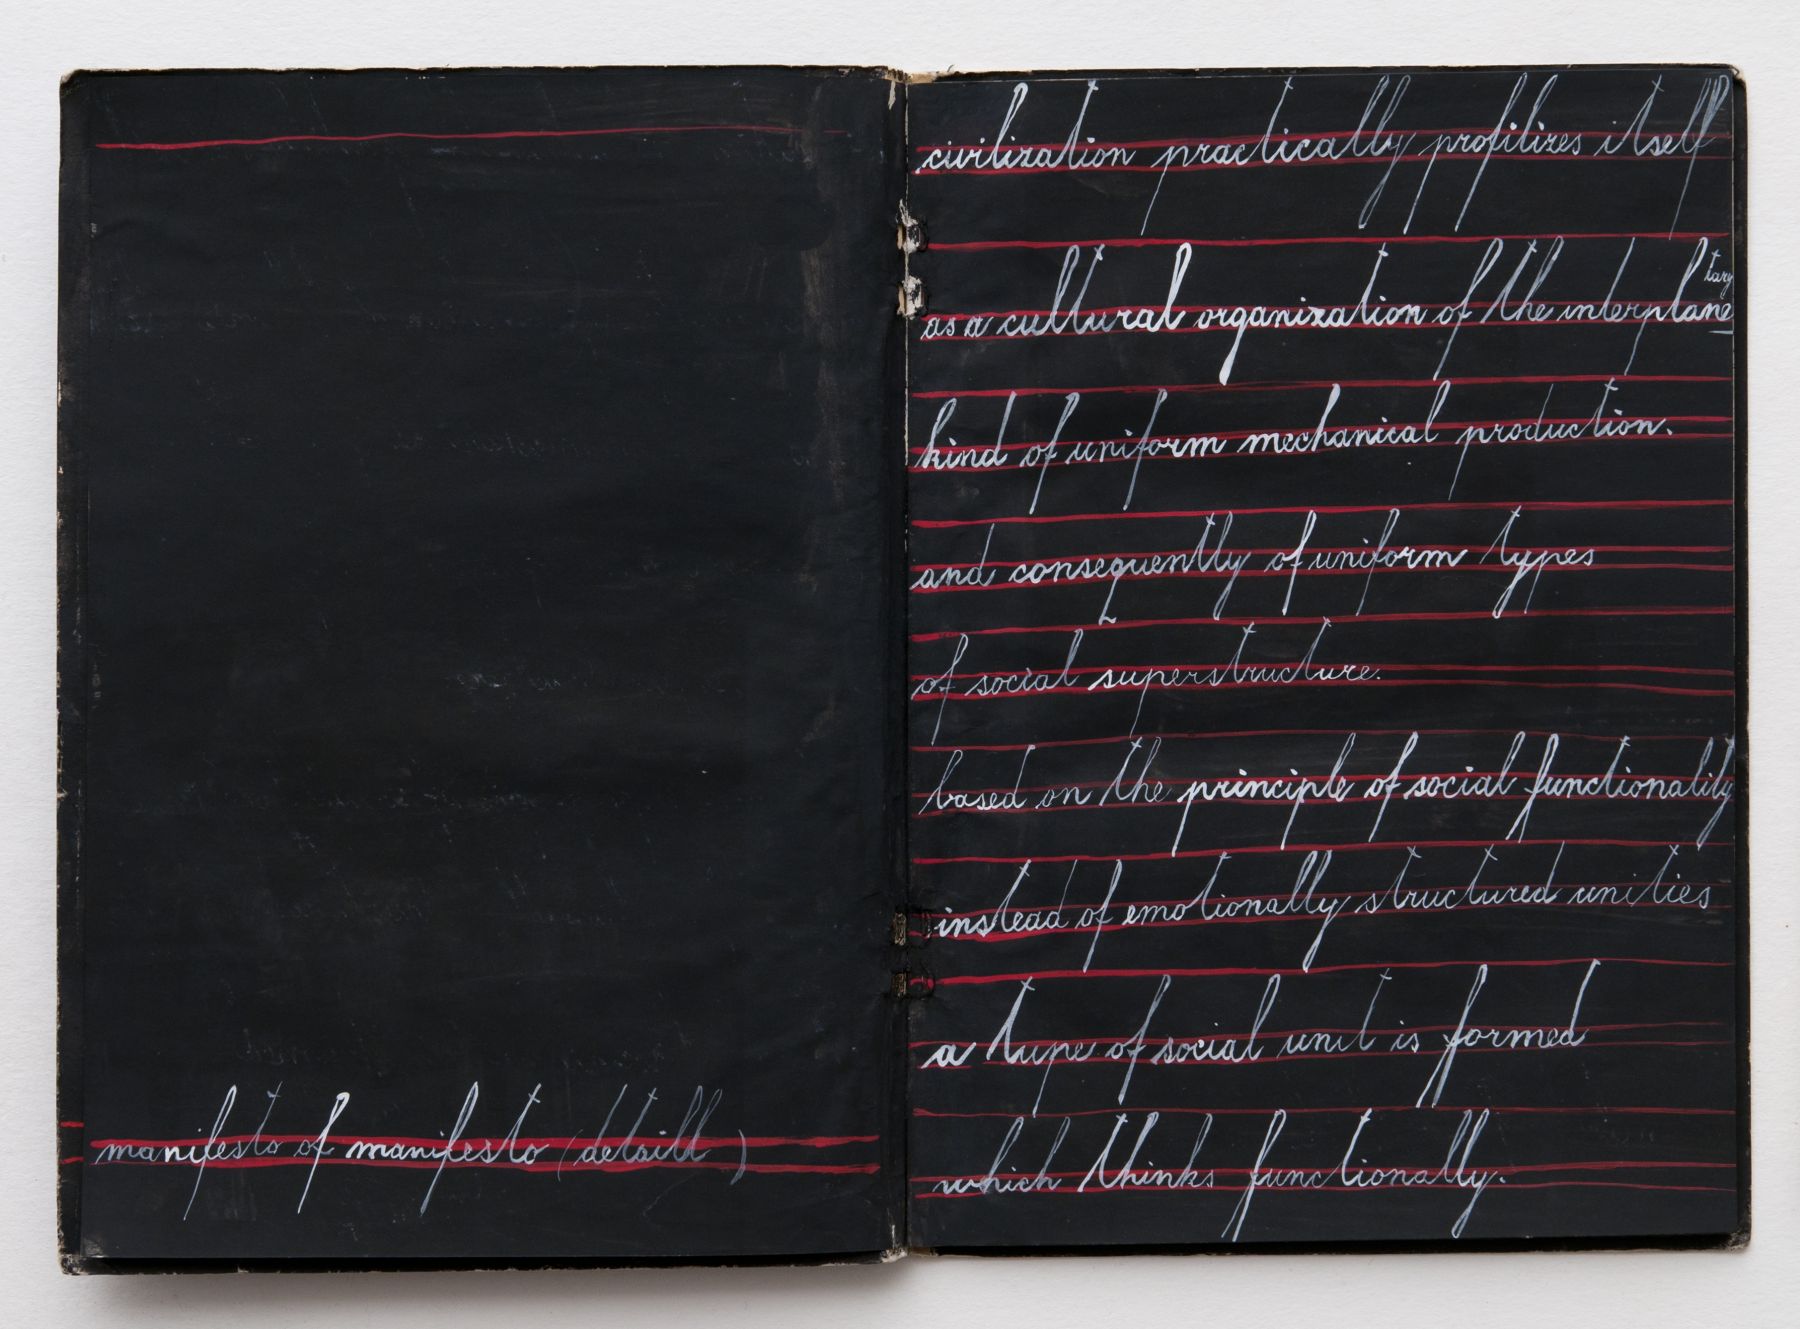 manifesto of manifesto (detaill)
civilization practically profilizes itself
as a cultural organization of the interplanetary
kind of uniform mechanical production.
and consequently of uniform types
of social superstructure.
based on the principle of social functionality
instead of emotionally structured unities
a type of social unit is formed
which thinks functionally.